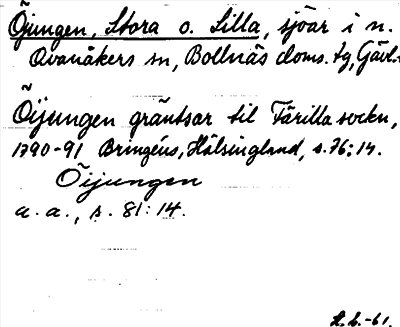 Öjungen, Stora o. Lilla, sjöar i n.
Ovanåkers sn, Bollnäs doms. tg, Gävl.
Öijungen gräntsar til Färilla sockn,
1790-91 Bringéus, Hälsingland, s. 76:14.
Öijungen
a. a., s. 81:14.
-61.